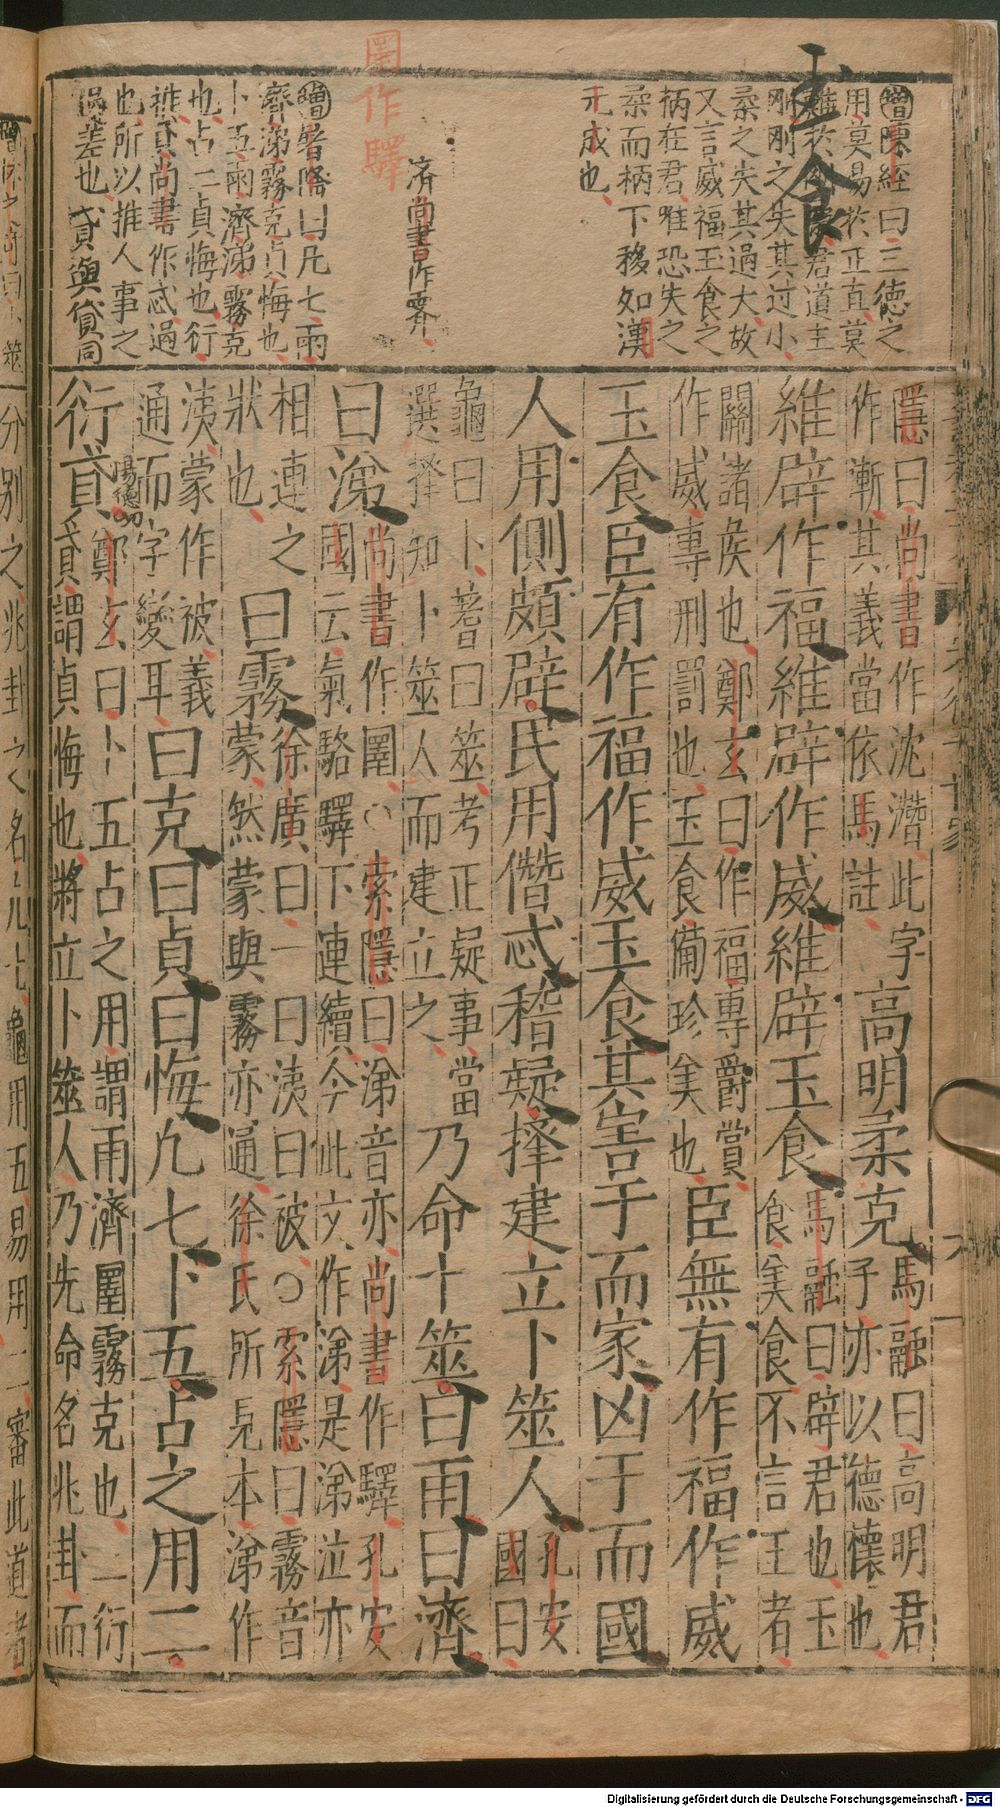 王食
增陳經曰三德之
用莫易於正直莫
難於
君道主
剛剛之失其过小
柔之失其過大故
又言威福玉食之
柄在君惟恐失之
柔而柄下移如漢
元成也
済尚書作霽
圛作驛
增暑隆曰凡七雨
濟涕霧克貞悔也
卜五雨濟涕霧克
也占二貞悔也衍
推貣尚書作忒過
也所以推人事之
過差也貣與貸同
隱曰尚書作沈潛此字
作漸其義當依馬註
高明柔克
馬融曰高明君
子亦以德懷也
維辟作福維辟作威維辟玉食
馬融曰辟君也玉
食美食不言王者
關諸矦也鄭玄曰作福專爵賞
作威專刑罰也玉食備珍美也
臣無有作福作威
玉食臣有作福作威玉食其害于而家凶于而國
人用側頗辟民用僭忒稽疑擇建立卜筮人
孔安
國曰
龜曰卜蓍曰筮考正疑事當
選擇知卜筮人而建立之
乃命卜筮曰雨曰濟
曰涕
尚書作圛○索隱曰涕音亦尚書作驛孔安
國云氣駱驛下連續今此文作涕是涕泣亦
相連之
狀也
曰霧
徐廣曰一曰洟曰被○索隱曰霧音
蒙然蒙與霧亦通徐氏所見本涕作
洟蒙作被義
通而字變耳
曰克曰貞曰悔凡七卜五占之用二
衍貣
鄭玄曰卜五占之用謂雨濟圛霧克也二衍
貣謂貞悔也將立卜筮人乃先命名兆卦而
分別之兆卦之名凡七龜用五易用二審此道者
Digitalisierung gefördert durch die Deutsche Forschungsgemeinschaft - DFG